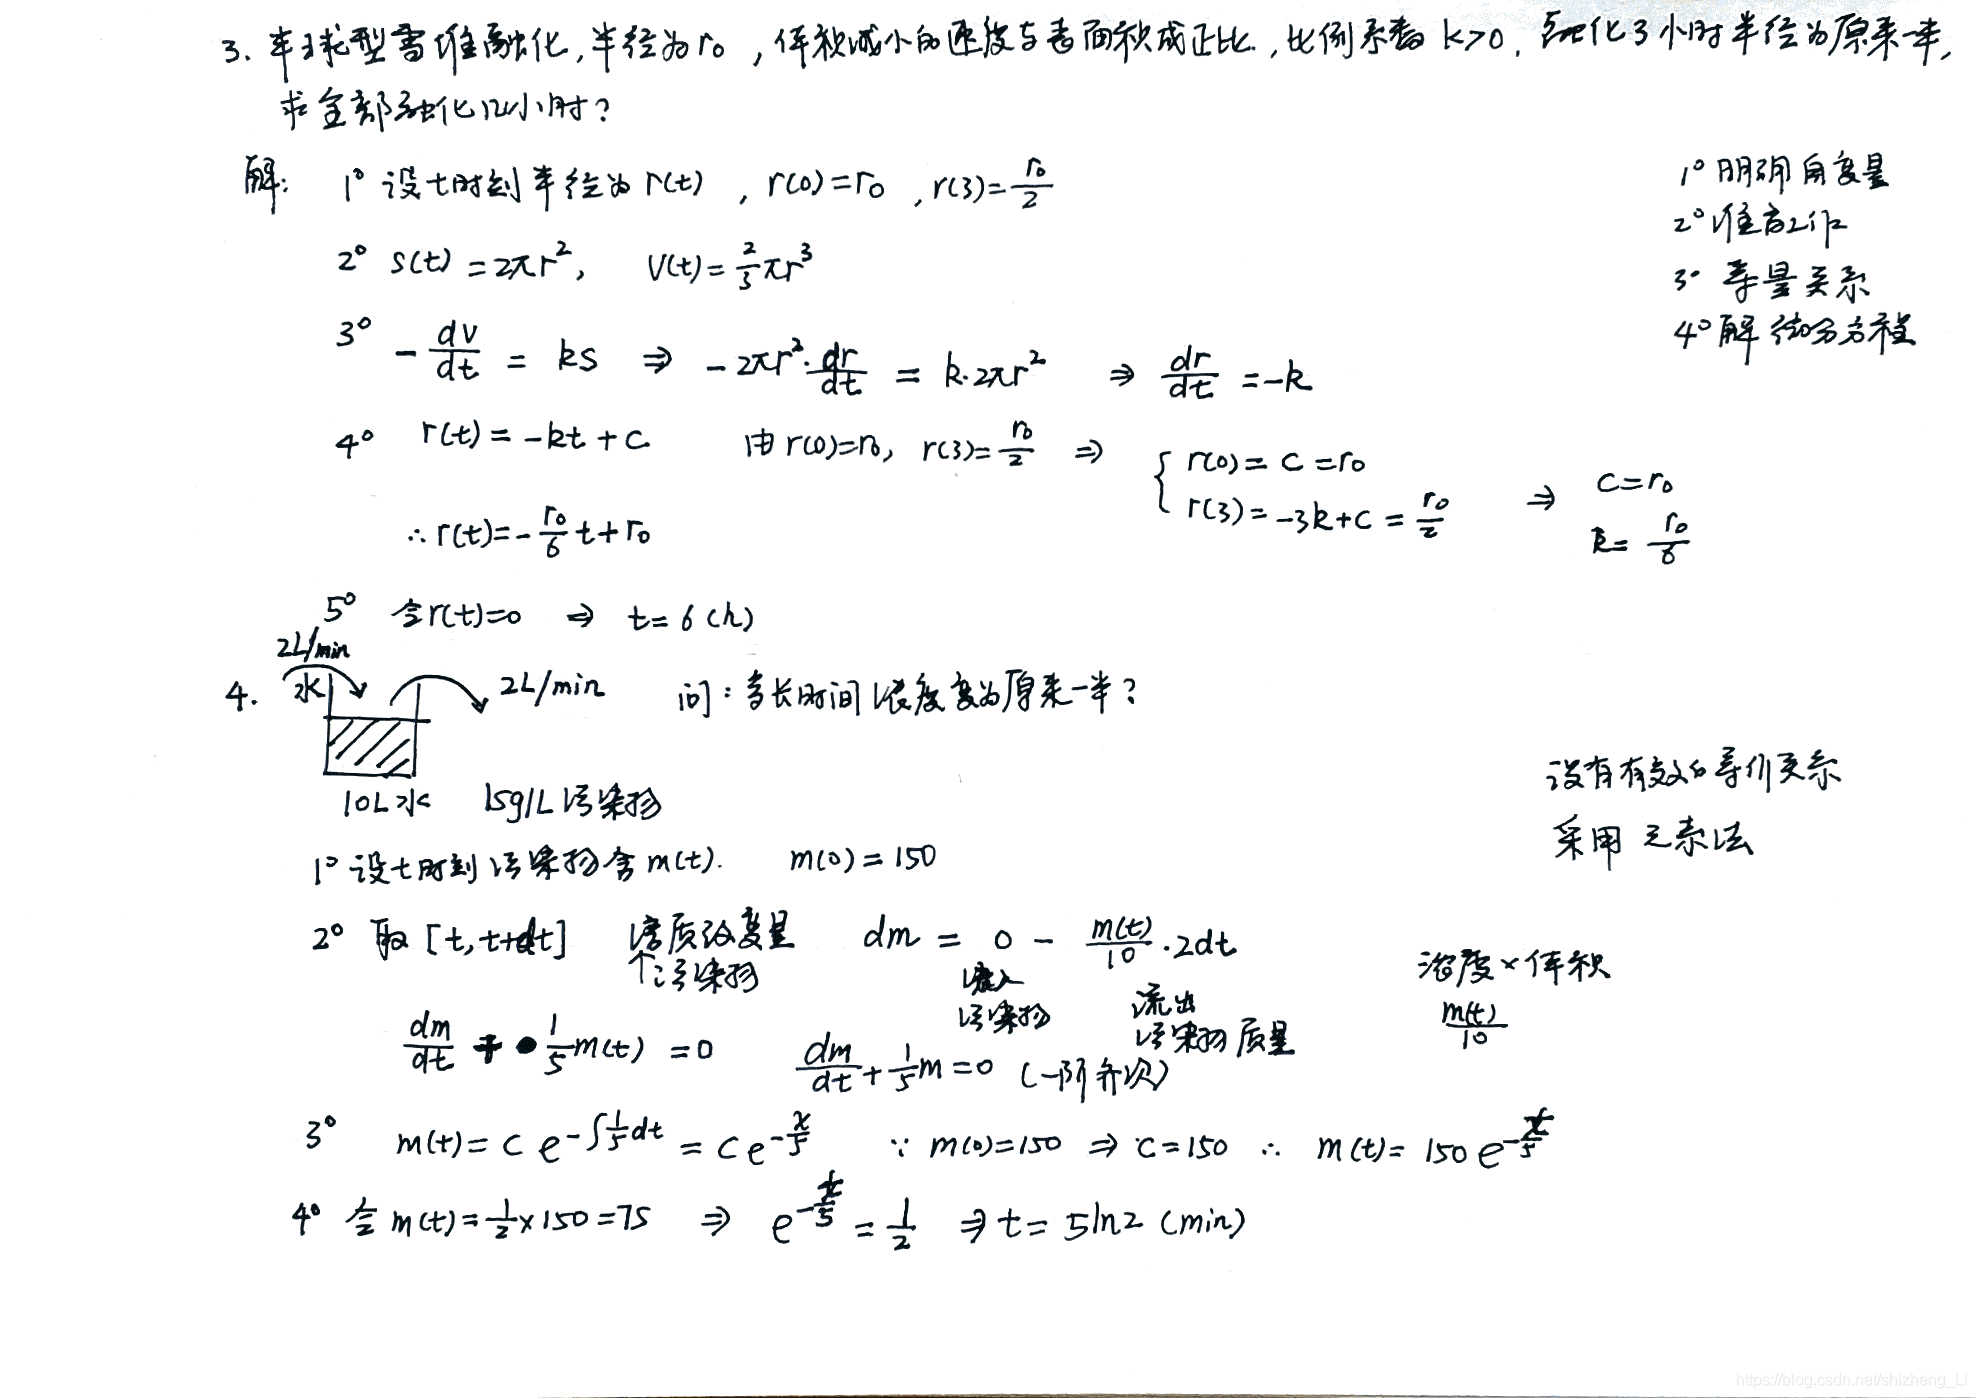 3. 半球型雪堆融化,半径为r₀,体积减小的速度与表面积成正比,比例系数 k>0,融化3小时半径为原来一半,
求全部融化几小时?
解: 1° 设t时刻半径为r(t), r(0)=r₀, r(3)=r₀/2
2° S(t)=2πr², V(t)=2/3πr³
3° -dV/dt = kS ⇒ -2πr²·dr/dt = k·2πr² ⇒ dr/dt=-k
4° r(t)=-kt+C 由r(0)=r₀, r(3)=r₀/2 ⇒ { r(0)=C=r₀
r(3)=-3k+C=r₀/2 ⇒ C=r₀
k=r₀/6
∴ r(t)=-r₀/6 t+r₀
5° 令r(t)=0 ⇒ t=6(h)
1° 明确自变量
2° 准备工作
3° 等量关系
4° 解微分方程
4. 2L/min
水
2L/min 问:多长时间浓度变为原来一半?
10L水 15g/L污染物
没有有效的等价关系
采用元素法
1° 设t时刻污染物含m(t). m(0)=150
2° 取[t,t+dt] 溶质改变量 dm = 0 - m(t)/10·2dt
↑污染物
流入
污染物
流出
污染物质量
浓度×体积
m(t)/10
dm/dt + 1/5m(t)=0 dm/dt+1/5m=0 (一阶齐次)
3° m(t)=Ce^(-∫1/5dt)=Ce^(-x/5) ∵ m(0)=150 ⇒ C=150 ∴ m(t)=150e^(-t/5)
4° 令m(t)=1/2×150=75 ⇒ e^(-t/5)=1/2 ⇒ t=5ln2 (min)
https://blog.csdn.net/shizheng_Li